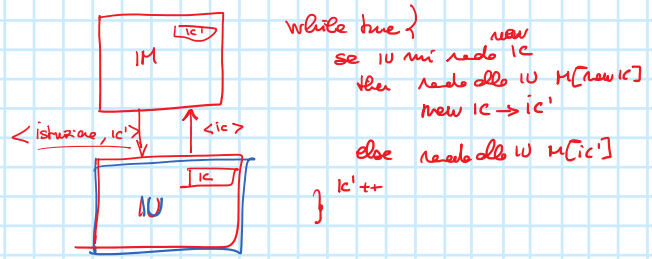 IC'
IM
<istruzione, IC'>
<IC>
IC
IU
while true {
new
se IU mi manda IC
then mando alla IU M[new IC]
new IC → IC'
else mando alla IU M[IC']
IC'++
}